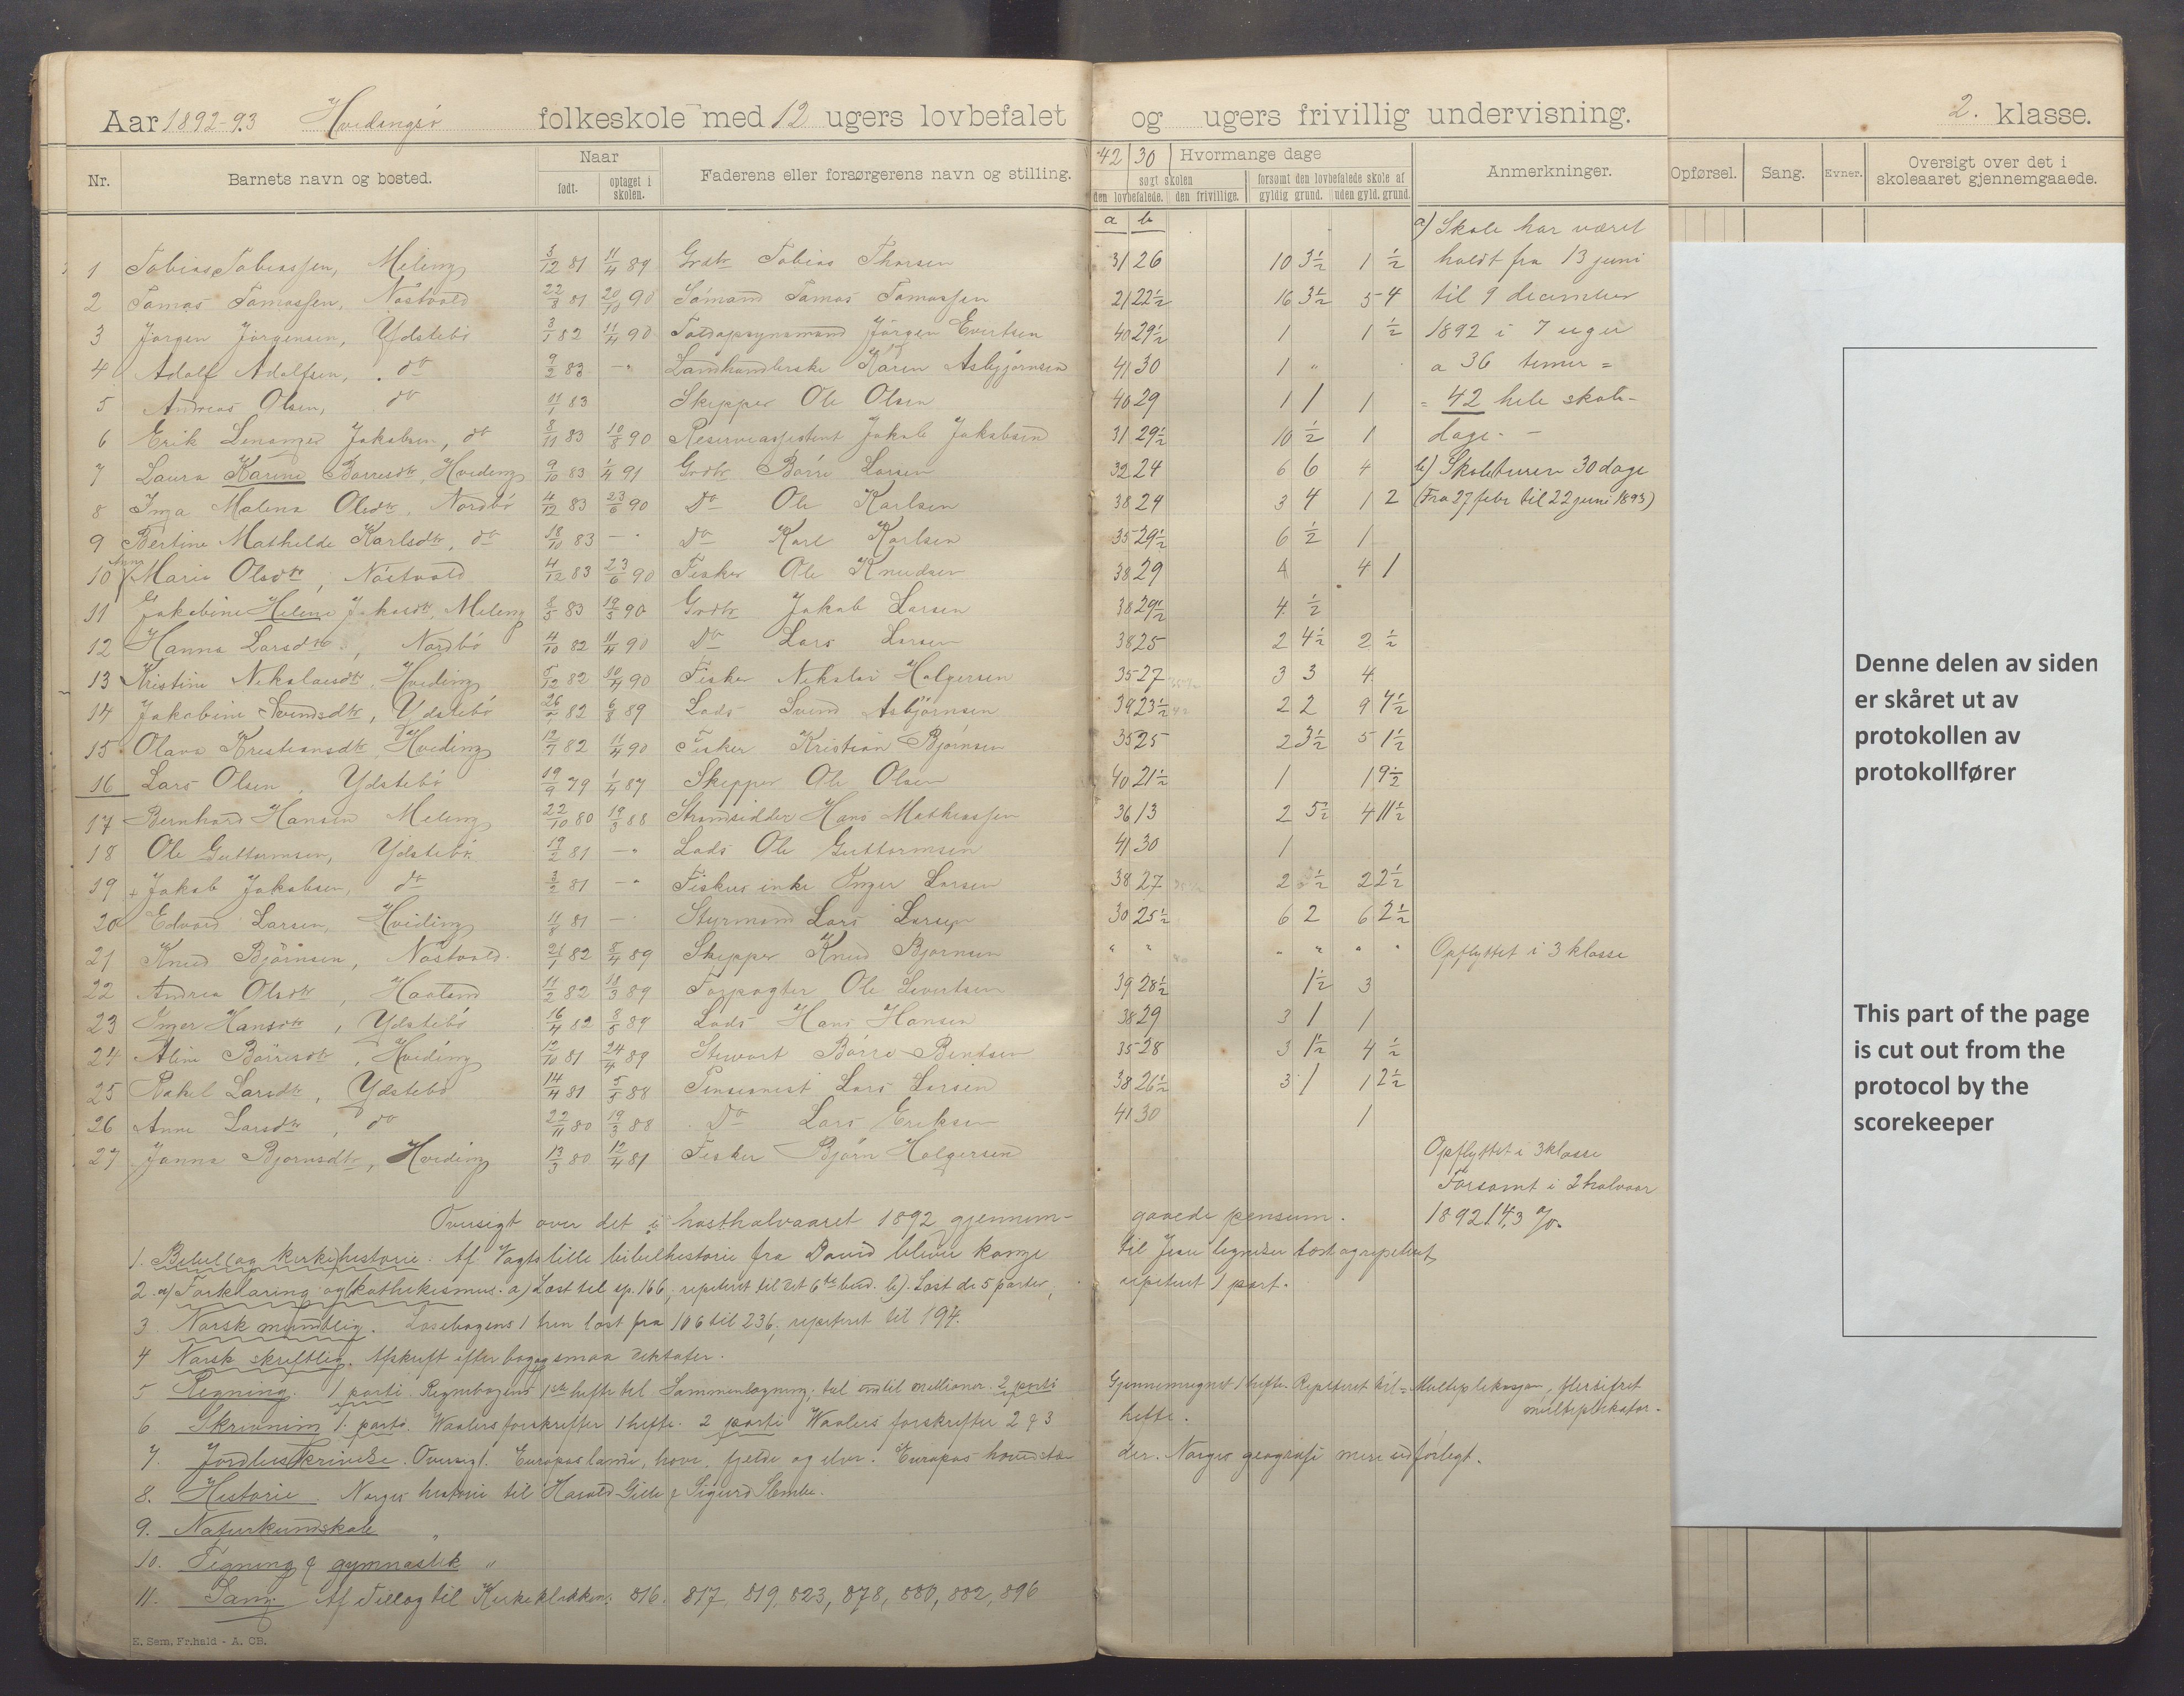 Aar 1892-93 Hvidingsö folkeskole med 12 ugers lovbefalet og ugers frivillig undervisning. 2. klasse.
Nr. Barnets navn og bosted. Naar født. optaget i skolen. Faderens eller forsørgerens navn og stilling. 42 30 Hvormange dage søgt skolen den lovbefalede. den frivillige. forsømt den lovbefalede skole af gyldig grund. uden gyld. grund. Anmerkninger. Opførsel. Sang. Evner. Oversigt over det i skoleaaret gjennemgaaede.
a b a) Skole har været
1 Tobias Tobiassen, Meling 3/12 81 11/4 89 Grdbr Tobias Thorsen 31 26 10 3½ 1 ½ holdt fra 13 juni
2 Tomas Tomassen, Nästvold 22/8 81 20/10 90 Sömand Tomas Tomassen 21 22½ 16 3½ 5 4 til 9 december
3 Jörgen Jörgensen, Ydstebö 3/1 82 11/4 90 Toldopsynsmand Jörgen Evertsen 40 29½ 1 1 ½ 1892 i 7 uger
4 Adolf Adolfsen, do 9/2 83 - " Landhandlerske Karen Asbjörnsen 41 30 1 " a 36 timer =
5 Andreas Olsen, do 11/1 83 Skipper Ole Olsen 40 29 1 1 1 = 42 hele skole-
6 Erik Lenanger Jakobsen, do 8/11 83 10/8 90 Reserveassistent Jakob Jakobsen 31 29½ 10 ½ 1 dage. -
7 Laura Karine Börresdtr, Hviding 9/10 83 1/4 91 Grdbr Börre Larsen 32 24 6 6 4 b) Skoleturen 30 dage
8 Inga Malena Olsdtr, Nordbö 4/12 83 23/6 90 Do Ole Karlsen 38 24 3 4 1 2 (Fra 27 febr til 22 juni 1893)
9 Bertine Mathilde Karlsdtr, do 18/10 83 - " Do Karl Karlsen 35 29½ 6 ½ 1
10 Anna Maria Olsdtr, Nästvold 4/12 83 23/6 90 Fisker Ole Knudsen 38 29 4 4 1
11 Jakobine Heline Jakobsdtr, Meling 8/5 83 19/5 90 Grdbr Jakob Larsen 38 29½ 4 ½
12 Hanna Larsdtr, Nordbö 4/10 82 11/4 90 Do Lars Larsen 38 25 2 4½ 2 ½
13 Kristine Nikolaisdtr, Hviding 5/12 82 10/4 90 Fisker Nikolai Holgersen 35 27 3 3 4
14 Jakobine Svendsdtr, Ydstebö 82 6/8 89 Lods Svend Asbjörnsen 39 23½ 2 2 9 4½
15 Olava Kristiansdtr, Hviding 12/7 82 11/4 90 Fisker Kristian Bjørnsen 35 25 2 3½ 5 1½
16 Lars Olsen, Ydstebö 19/9 79 1/4 87 Skipper Ole Olsen 40 21½ 1 1 9½
17 Bernhard Hansen Meling 22/10 80 19/3 88 Strandsidder Hans Mathiassen 36 13 2 5½ 4 11½
18 Ole Guttormsen, Ydstebö 19/2 81 - " Lods Ole Guttormsen 41 30 1
19 Jakob Jakobsen, do 3/2 81 - " Fiskerenke Inger Larsen 38 27 2 ½ 2 2½
20 Edvard Larsen, Hviding 11/8 81 - Styrmand Lars Larsen 30 25½ 6 2 6 2½
21 Knud Björnsen, Nästvold 21/1 82 8/4 89 Skipper Knud Bjørnsen " " " " " " Opflyttet i 3 klasse
22 Andrea Olsdtr, Haaland 11/2 82 18/3 89 Forpagter Ole Sivertsen 39 28½ 1½ 3
23 Inger Hansdtr, Ydstebö 16/4 82 8/5 89 Lods Hans Hansen 38 29 3 1 1
24 Aline Börresdtr, Hviding 12/10 81 24/4 89 Stewart Börre Bentsen 35 28 3 1½ 4 ½
25 Rakel Larsdtr, Ydstebö 14/4 81 5/5 88 Pensionist Lars Larsen 38 26½ 3 1 1 2½
26 Anne Larsdtr, do 22/11 80 19/3 88 Do Lars Eriksen 41 30 1
27 Janna Bjørnsdtr, Hviding 13/3 80 12/4 81 Fisker Bjørn Holgersen Opflyttet i 3 klasse
Forsømt i 2 halvaar
Oversigt over det i høsthalvaaret 1892 gjennem- gaaede pensum. 1892 14,3 %.
1. Bibel (og kirke)historie. Af Vogts lille bibelhistorie fra David bliver konge til Jesu lignelser læst og repeteret,
2. a) Forklaring og (kathekismus. a) Læst til sp. 166, repeteret til det 6te bud. b). Læst de 5 parter, repeteret 1 part.
3. Norsk mundtlig. Læsebogens 1 trin læst fra 106 til 236, repeteret til 194.
4 Norsk skriftlig. Afskrift efter bog og smaa diktater.
5 Regning. 1 parti Regnebogens 1ste hefte til Sammenlægning, tal indtil millioner. 2 parti Gjennemregnet 1 hefte. Repeteret til Multiplikasjon, flersifret multiplikator.
6 Skrivning 1. parti. Waalers forskrifter 1 hefte. 2 parti Waalers forskrifter 2 & 3 hefte.
7. Jordbeskrivelse. Oversigt. Europas lande, have, fjelde og elver. Europas hovedstæ- der. Norges geografi mere udførligt.
8. Historie Norges historie til Harald Gille & Sigurd Slembe.
9. Naturkundskab "
10. Tegning & gymnastik "
11. Sang. Af Tillæg til Kirkeklokken: 816. 817, 819, 823, 878, 880, 882, 896
E. Sem, Fr.hald - A. CB.
Denne delen av siden
er skåret ut av
protokollen av
protokollfører
This part of the page
is cut out from the
protocol by the
scorekeeper